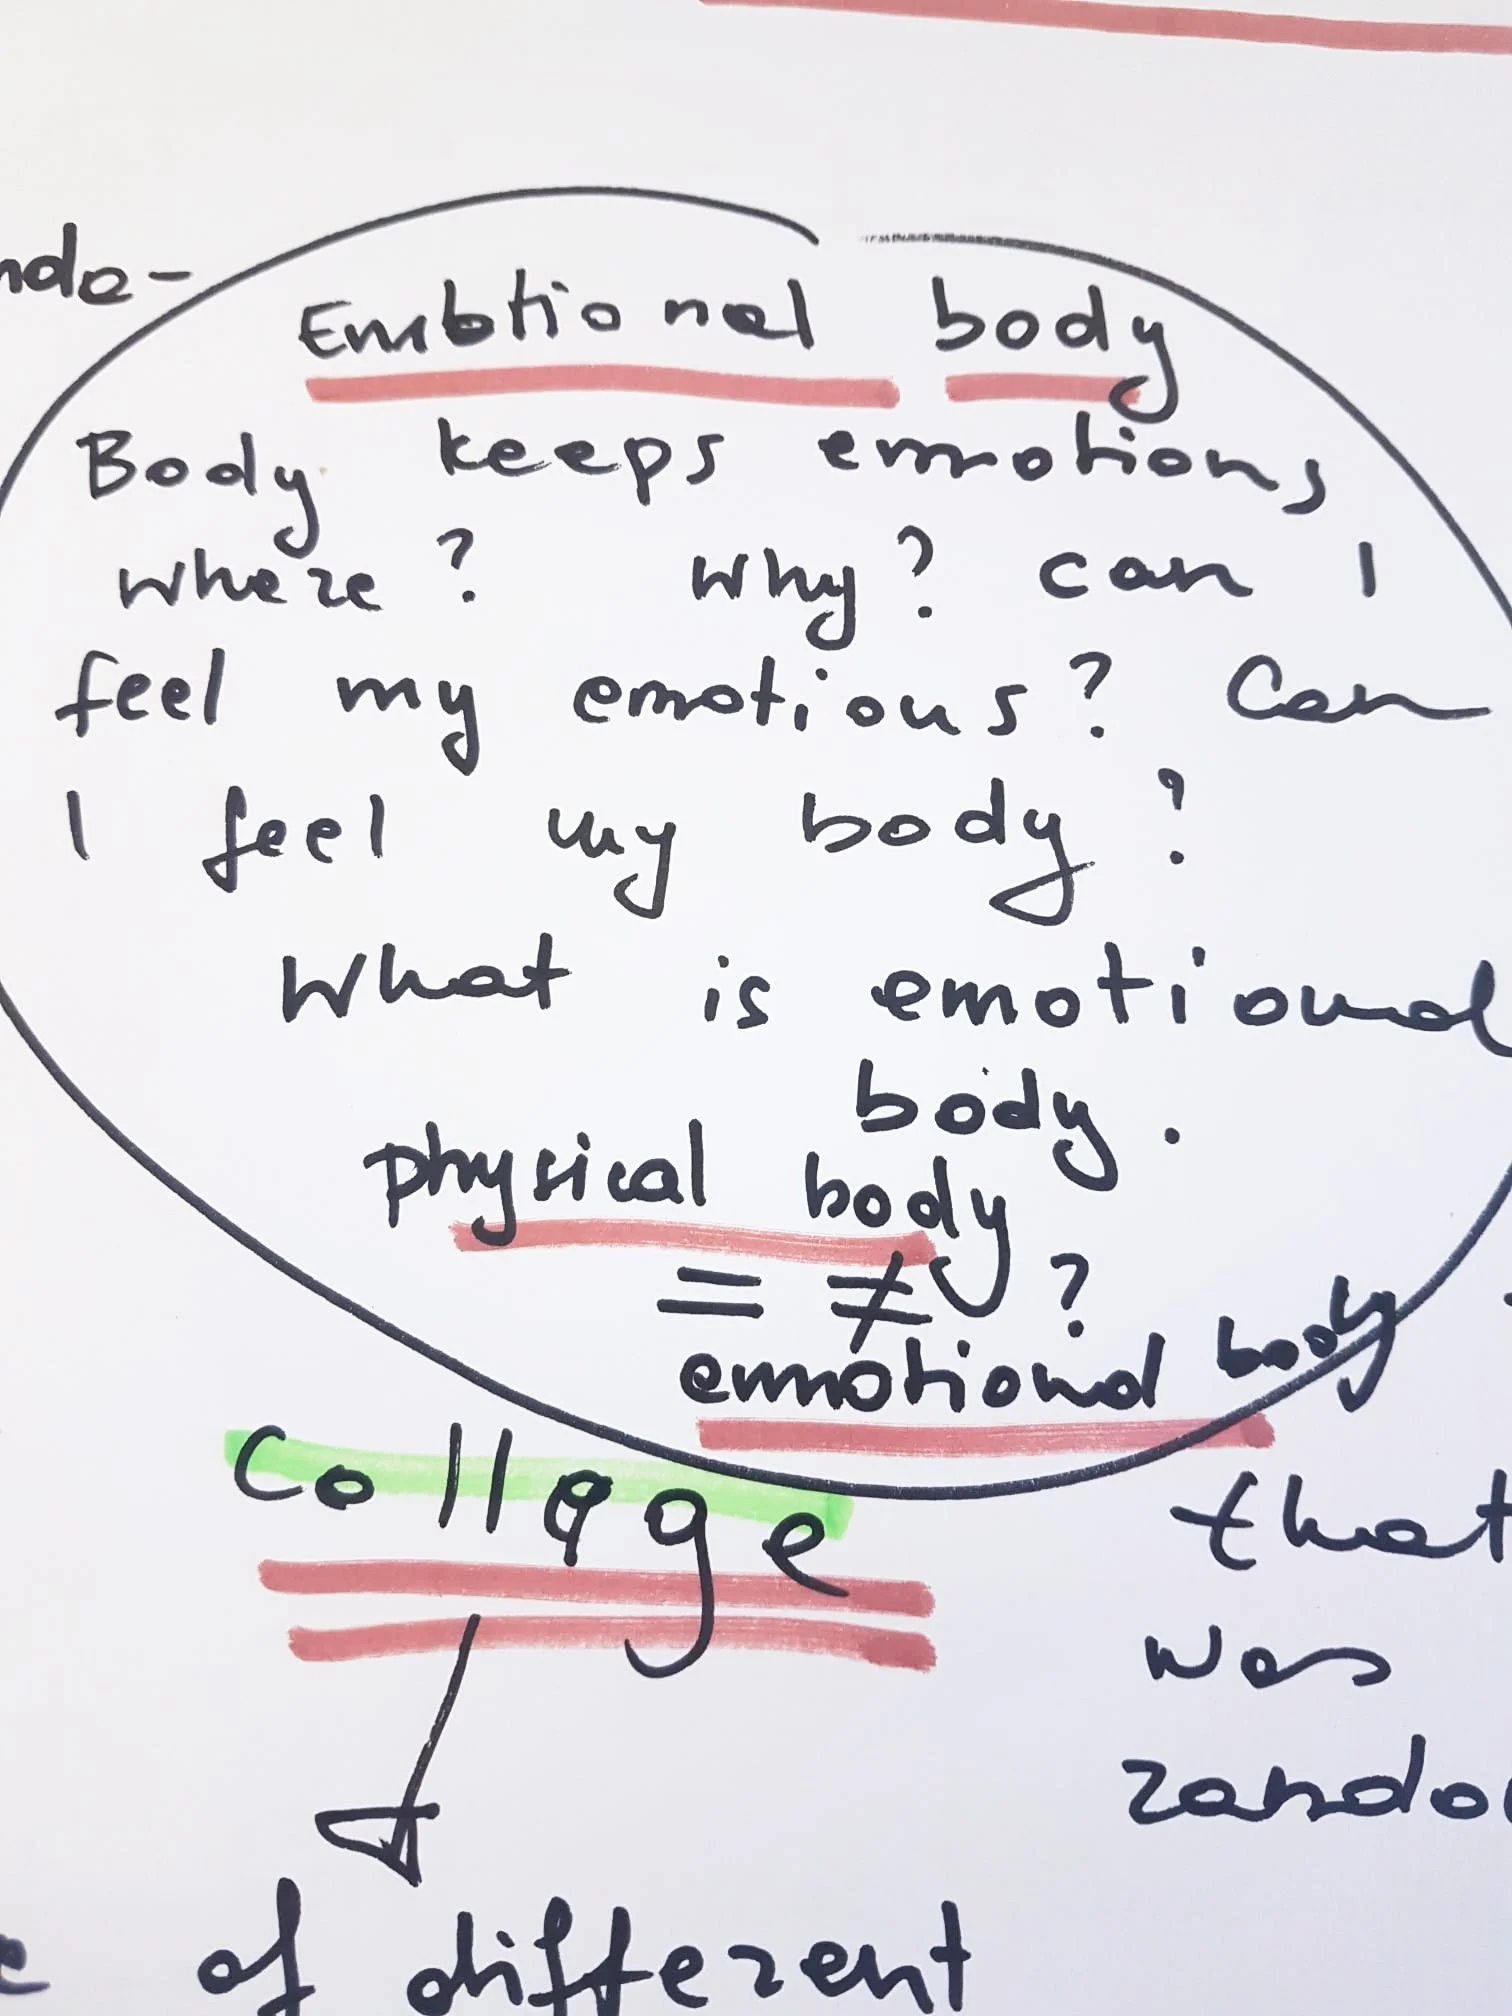 Emotional body
Body keeps emotions
where? why? can I
feel my emotions? Can
I feel my body?
What is emotional
body.
physical body
= ≠ ?
emotional body
Collage
that
was
of different